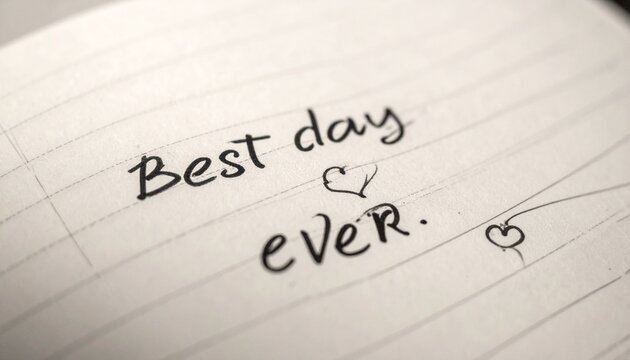 Best day
eveR.